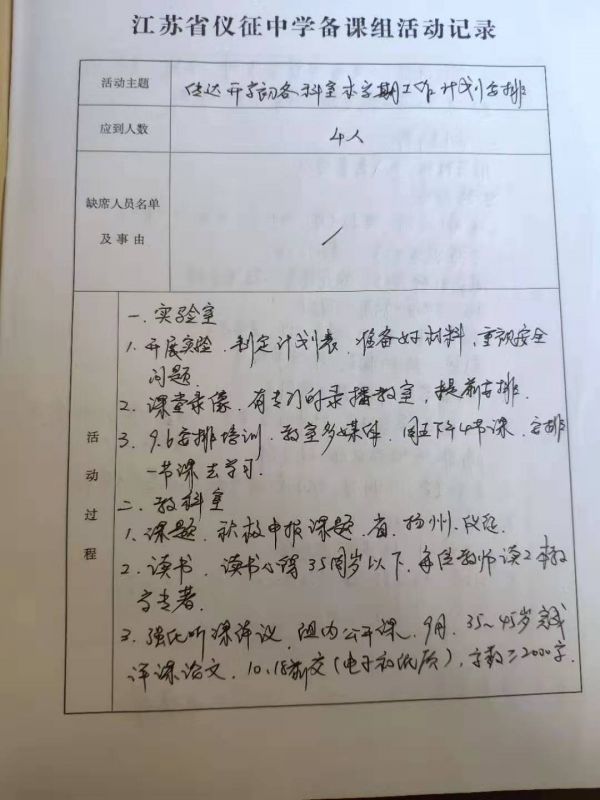 江苏省仪征中学备课组活动记录
活动主题
传达开学初各科室本学期工作计划安排
应到人数
4人
缺席人员名单
及事由
/
活动过程
一.实验室
1.开展实验.制定计划表.准备好材料,重视安全
问题.
2.课堂录像.有专门的录播教室,提前安排.
3.9.6安排培训.教室多媒体.周五下午4节课.安排
一节课去学习.
二.教科室
1.课题.积极申报课题.省.扬州.仪征.
2.读书.读书心得35周岁以下.每位教师读2本教
育专著.
3.强化听课评议.组内公开课.9月.35~45岁完成
评课论文.10.18前交(电子和纸质),字数≥2000字.